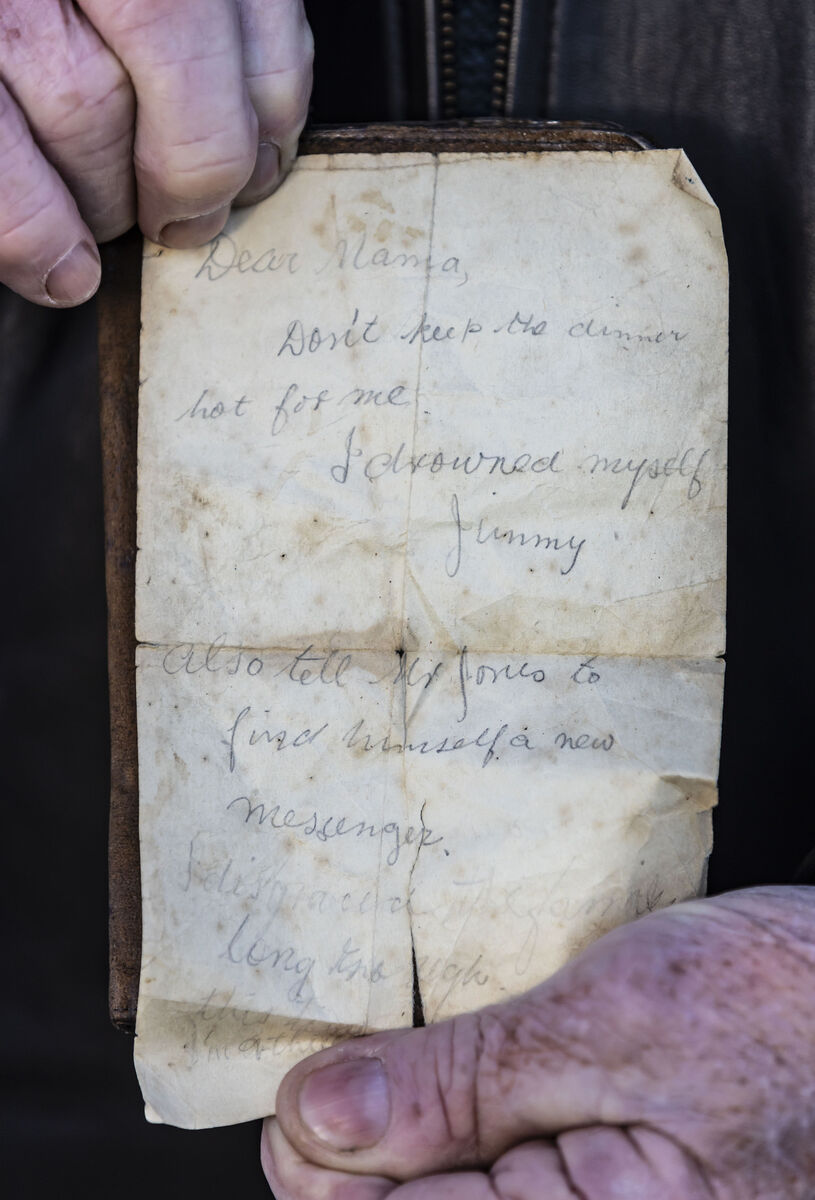 Dear Mama,
Don't keep the dinner
hot for me.
I drowned myself
Jimmy
Also tell Mr Jones to
find himself a new
messenger.
I disgraced the family
long enough.
this
I'm a